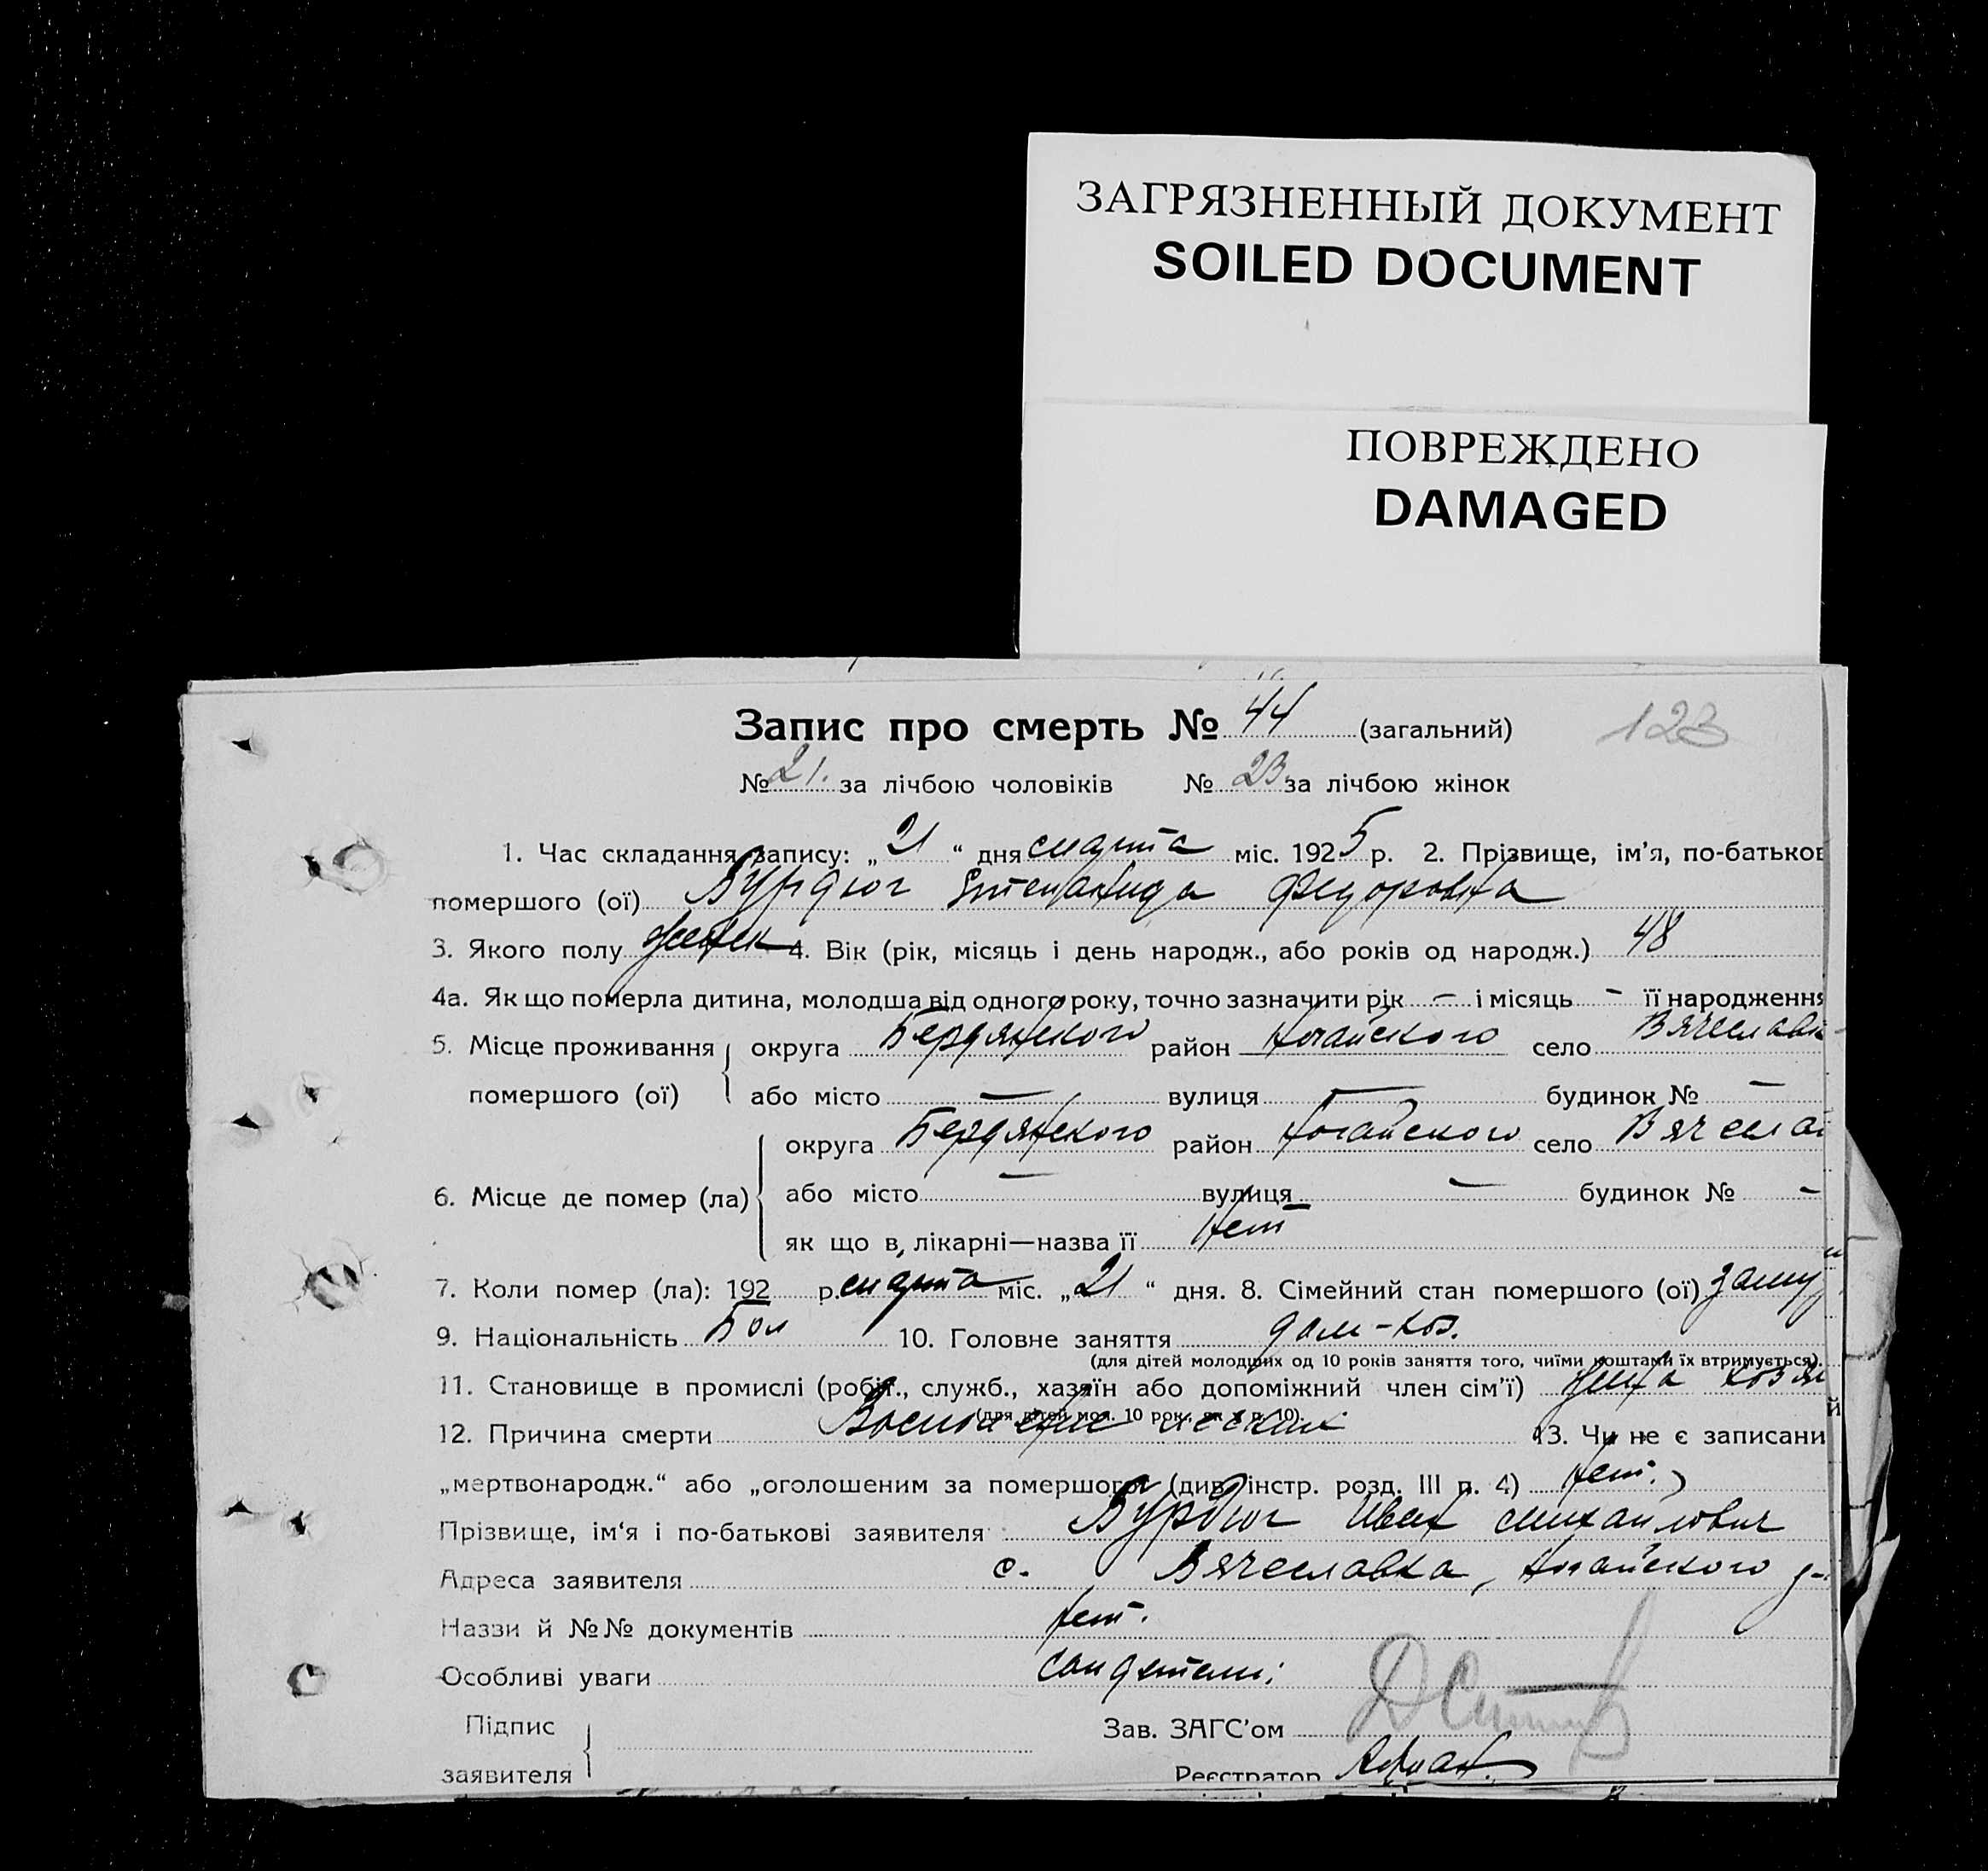 ЗАГРЯЗНЕННЫЙ ДОКУМЕНТ
SOILED DOCUMENT
ПОВРЕЖДЕНО
DAMAGED
Запис про смерть № 44 (загальний) 123
№ 21. за лічбою чоловіків № 23. за лічбою жінок
1. Час складання запису: „ 21 “ дня марта міс. 1925 р. 2. Прізвище, ім’я, по-батьков
помершого (ої) Бурдюг Степанида Федоровна
3. Якого полу женск 4. Вік (рік, місяць і день народж., або років од народж.) 48
4а. Як що померла дитина, молодша від одного року, точно зазначити рік – і місяць – її народження
5. Місце проживання округа Бердянского район Ногайского село Вячеславк
помершого (ої) або місто — вулиця — будинок № —
округа Бердянского район Ногайского село Вячеслав
6. Місце де помер (ла) або місто — вулиця — будинок № –
як що в лікарні—назва її Нет
7. Коли помер (ла): 192 р. марта міс. „ 21 “ дня. 8. Сімейний стан помершого (ої) замуж
9. Національність Бол 10. Головне заняття дом-хоз.
(для дітей молодших од 10 років заняття того, чиїми коштами їх втримується).
11. Становище в промислі (робіт., служб., хазяїн або допоміжний член сім’ї) жена хозя
(для дітей мол. 10 рок., як в п. 10).
12. Причина смерти Воспаление легких 13. Чи не є записани
„мертвонародж.“ або „оголошеним за помершого“ (див. інстр. розд. III п. 4) Нет.
Прізвище, ім‘я і по-батькові заявителя Бурдюг Иван Михайлович
Адреса заявителя с. Вячеславка, Ногайского р-
Назви й №№ документів Нет.
Особливі уваги
Підпис Зав. ЗАГС’ом
заявителя Реєстратор